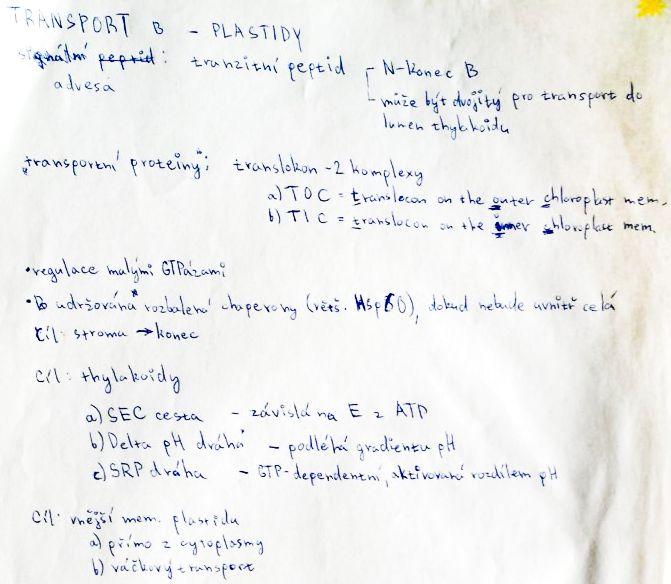 TRANSPORT B - PLASTIDY
signální peptid: tranzitní peptid - N-konec B
adresa - může být dvojitý pro transport do
lumen thylkhoidu
"transportní proteiny"; translokon - 2 komplexy
a) TOC = translocon on the outer chloroplast mem.
b) TIC = translocon on the inner chloroplast mem.
• regulace malými GTPázami
• B udržována rozbalená chaperony (větš. Hsp60), dokud nebude uvnitř celá
Cíl: stroma → konec
Cíl: thylakoidy
a) SEC cesta - závislá na E z ATP
b) Delta pH dráha - podléhá gradientu pH
c) SRP dráha - GTP-dependentní, aktivovaná rozdílem pH
Cíl: vnější mem. plastidu
a) přímo z cytoplasmy
b) váčkový transport